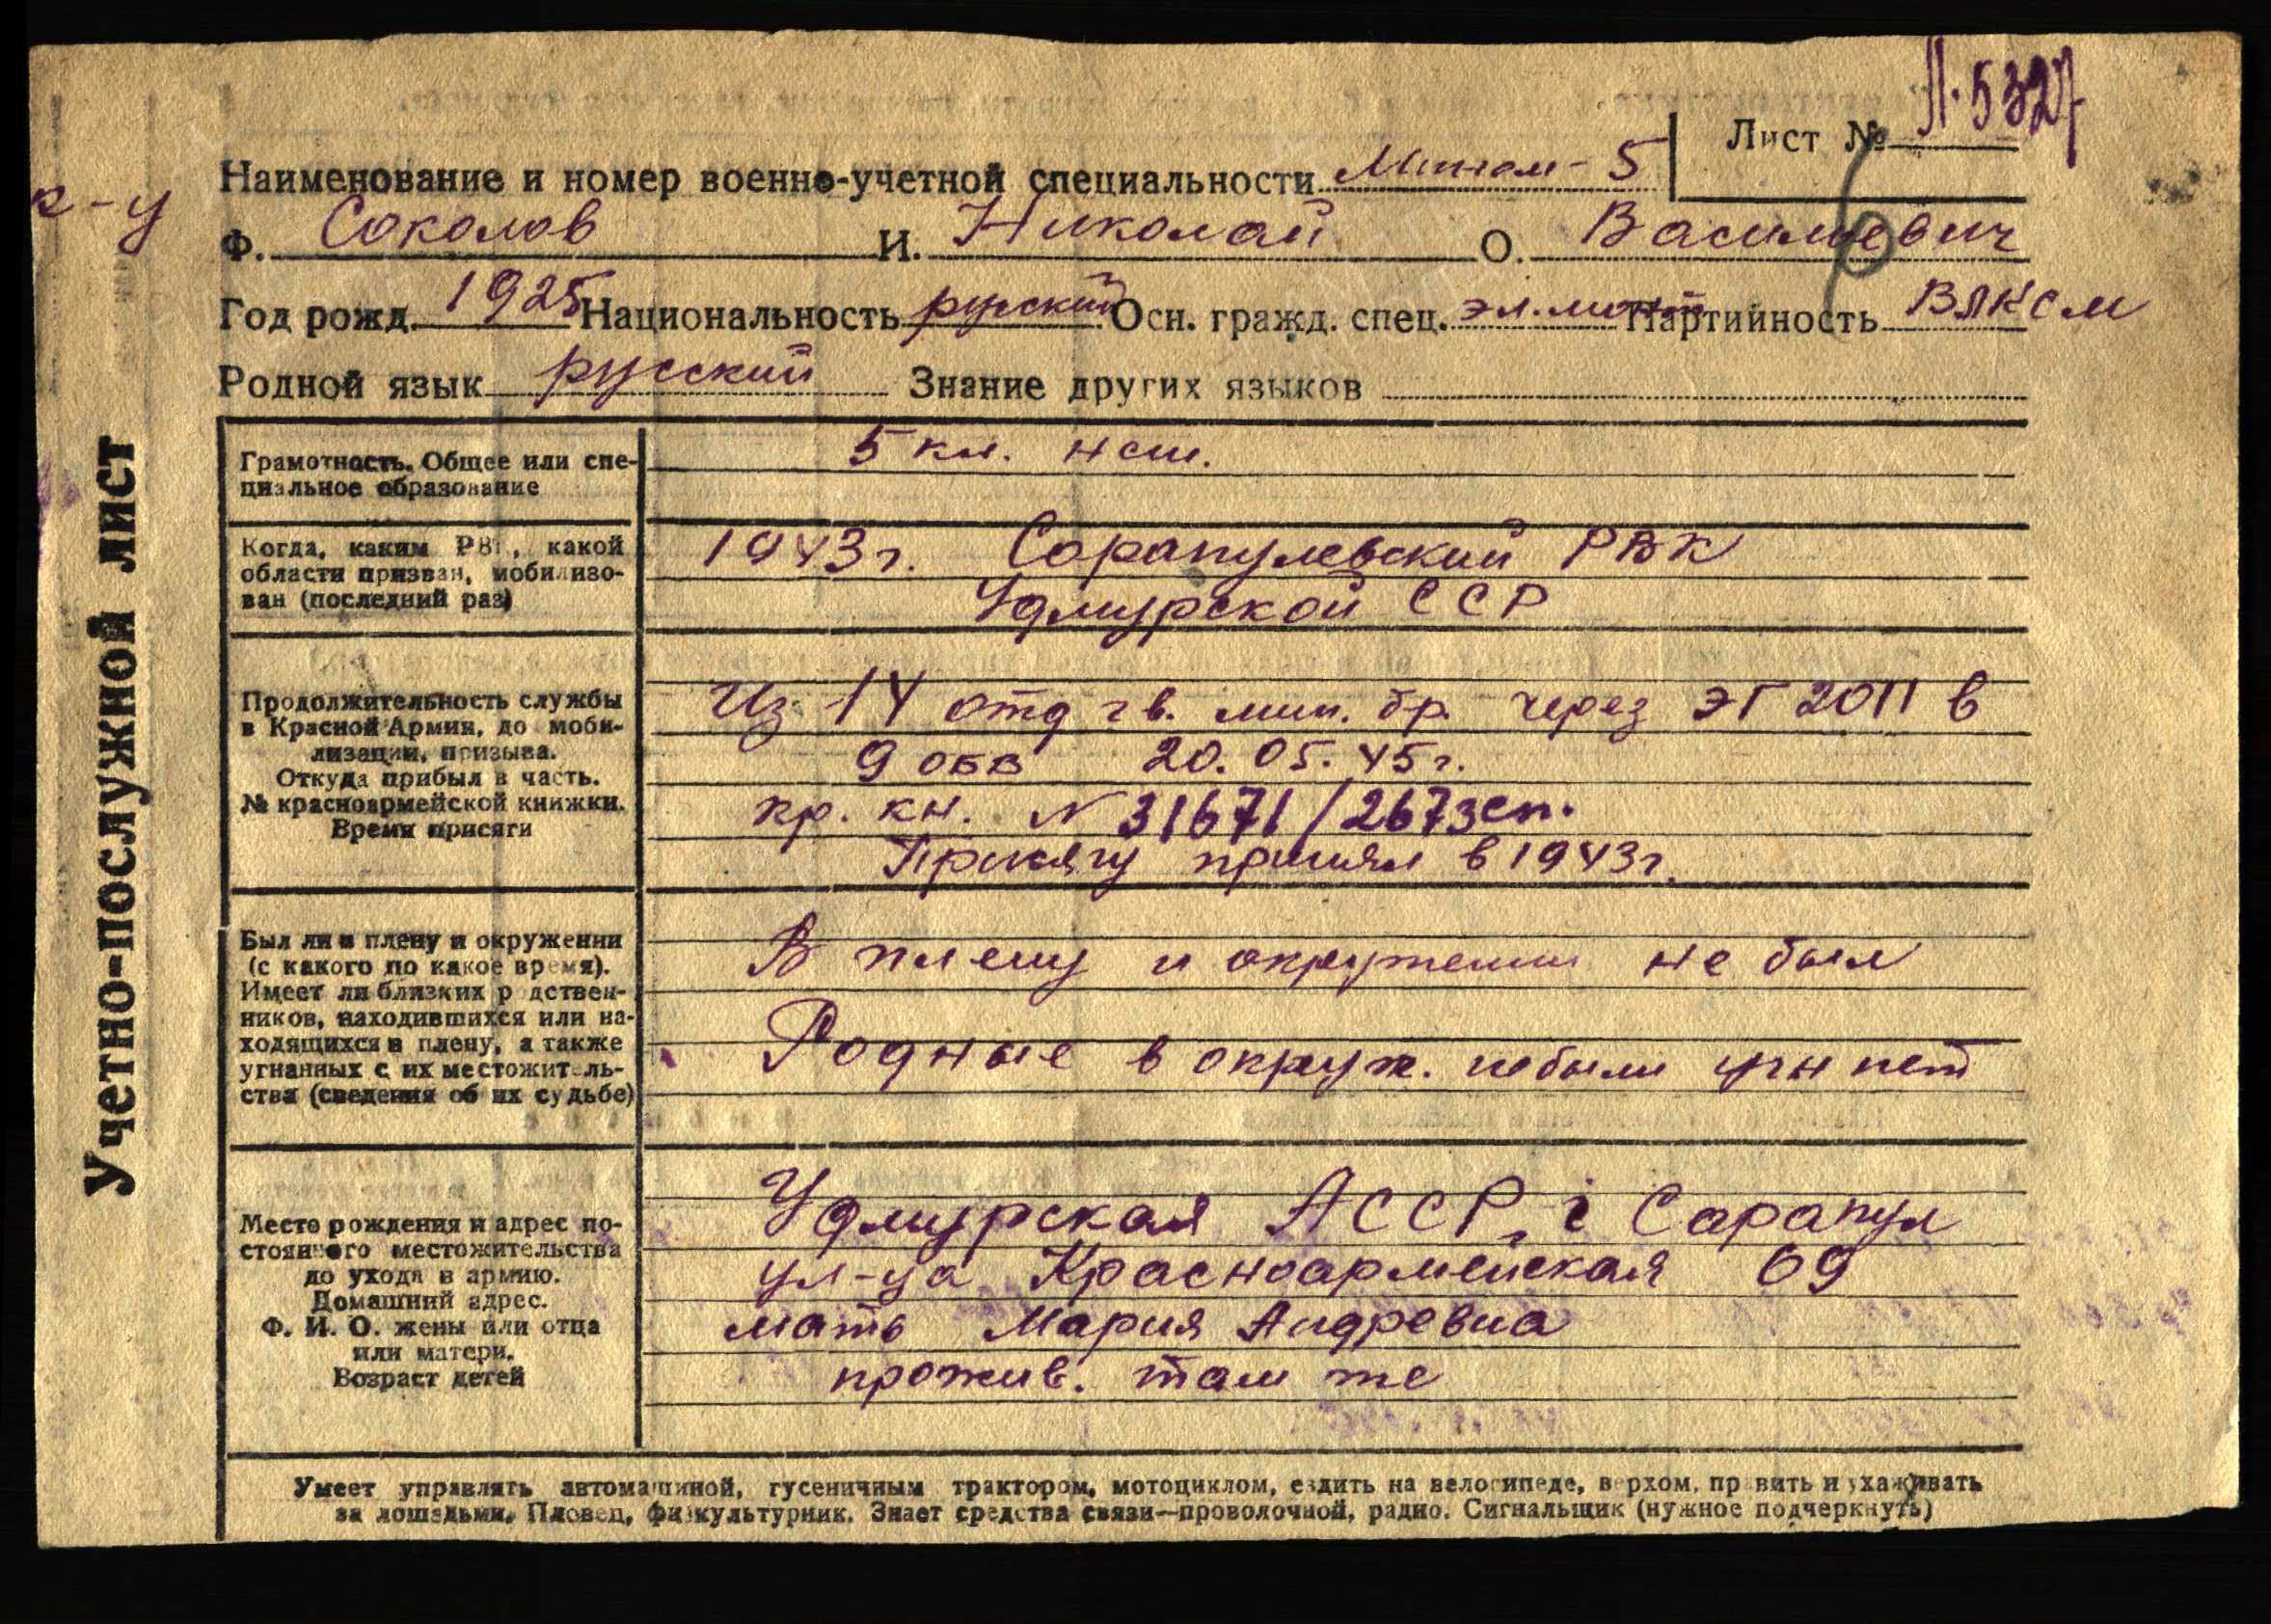 Л. 5327
Лист №
Наименование и номер военно-учетной специальности Мином-5
к-у
Ф. Соколов И. Николай О. Васильевич
Год рожд. 1925 Национальность русский Осн. гражд. спец. эл. монт Партийность ВЛКСМ
Родной язык русский Знание других языков
Учетно-послужной лист
Грамотность. Общее или спе-
циальное образование
5 кл. нсш.
Когда, каким РВК, какой
области призван, мобилизо-
ван (последний раз)
1943г. Сорапулевский РВК
Удмурской ССР
Продолжительность службы
в Красной Армии, до моби-
лизации, призыва.
Откуда прибыл в часть.
№ красноармейской книжки.
Время присяги
Из 14 отд гв. мин. бр. через ЭГ 2011 в
9 ОБВ 20.05.45г.
кр. кн. N 31671/2673сп.
Присягу принял в 1943г.
Был ли в плену и окружении
(с какого по какое время).
Имеет ли близких родствен-
ников, находившихся или на-
ходящихся в плену, а также
угнанных с их местожитель-
ства (сведения об их судьбе)
В плену и окружении не был
Родные в окруж. небыли угн нет
Место рождения и адрес по-
стоянного местожительства
до ухода в армию.
Домашний адрес.
Ф. И. О. жены или отца
или матери.
Возраст детей
Удмурская АССР, г Сарапул
ул-ца Красноармейская 69
мать Мария Андревна
прожив. там же
Умеет управлять автомашиной, гусеничным трактором, мотоциклом, ездить на велосипеде, верхом, править и ухаживать
за лошадьми. Пловец, физкультурник. Знает средства связи—проволочной, радио. Сигнальщик (нужное подчеркнуть)